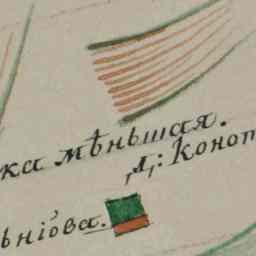 ка мѣньшая.
д: Коноп
ьніова.